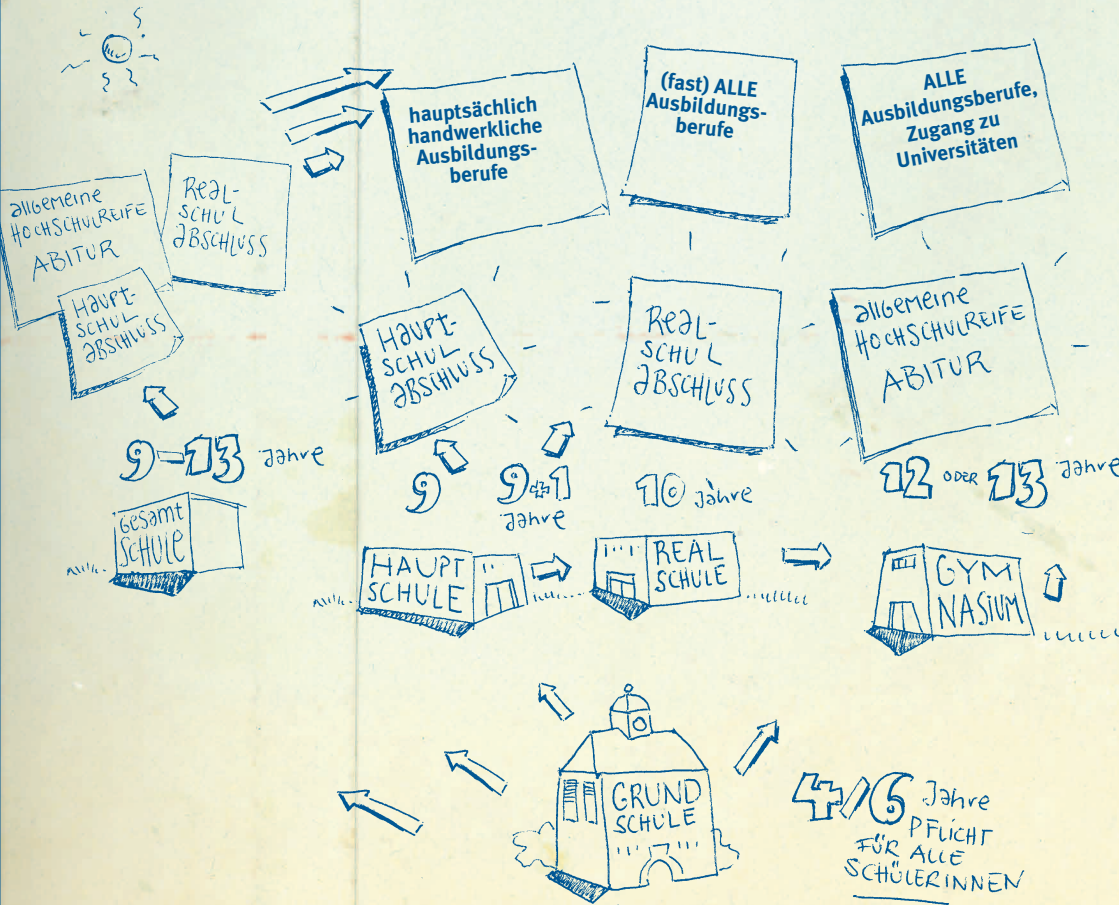 hauptsächlich
handwerkliche
Ausbildungs-
berufe
(fast) ALLE
Ausbildungs-
berufe
ALLE
Ausbildungsberufe,
Zugang zu
Universitäten
allgemeine
HOCHSCHULREIFE
ABITUR
REAL-
SCHUL
ABSCHLUSS
HAUPT-
SCHUL
ABSCHLUSS
HAUPT-
SCHUL
ABSCHLUSS
REAL-
SCHUL
ABSCHLUSS
allgemeine
HOCHSCHULREIFE
ABITUR
9–13 Jahre
9
9+1
Jahre
10 Jahre
12 ODER 13 Jahre
GESAMT
SCHULE
HAUPT
SCHULE
REAL
SCHULE
GYM
NASIUM
GRUND
SCHULE
4/6 Jahre
PFLICHT
FÜR ALLE
SCHÜLERINNEN